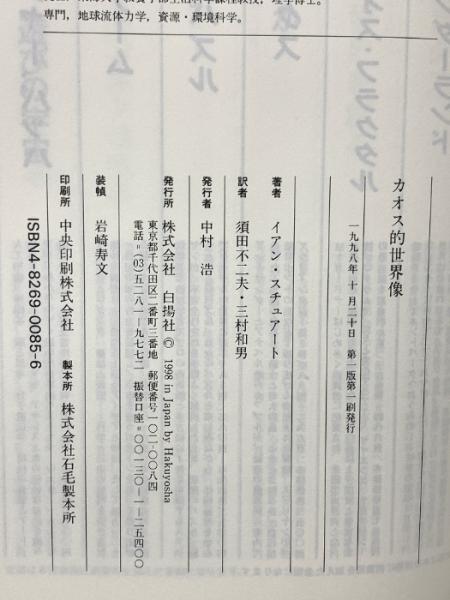 専門，地球流体力学，資源・環境科学。
カオス的世界像
一九九八年 十 月二十日 第一版第一刷発行
著者 イアン・スチュアート
訳者 須田不二夫・三村和男
発行者 中村 浩
発行所 株式会社 白揚社 © 1998 in Japan by Hakuyosha
東京都千代田区二番町三番地 郵便番号一〇二-〇〇八四
電話＝(03)五二八一-九七七二 振替口座＝〇〇一三〇-一-二五四〇〇
装幀 岩崎寿文
印刷所 中央印刷株式会社 製本所 株式会社石毛製本所
ISBN4-8269-0085-6